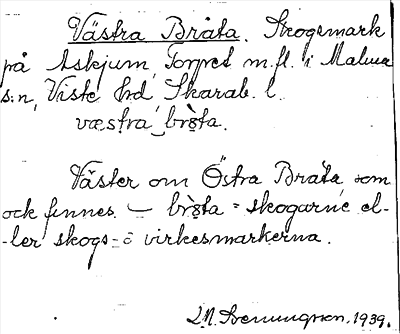 Västra Bråta. Skogsmark
på Askjum, Torpet m.fl. i Malma
s:n, Viste hd, Skarab. l.
væstra brɔ̀ta.
Väster om Östra Bråta som
ock finnes. – brɔ̀ta = skogarne el-
-ler skogs- o virkesmarkerna.
1939.